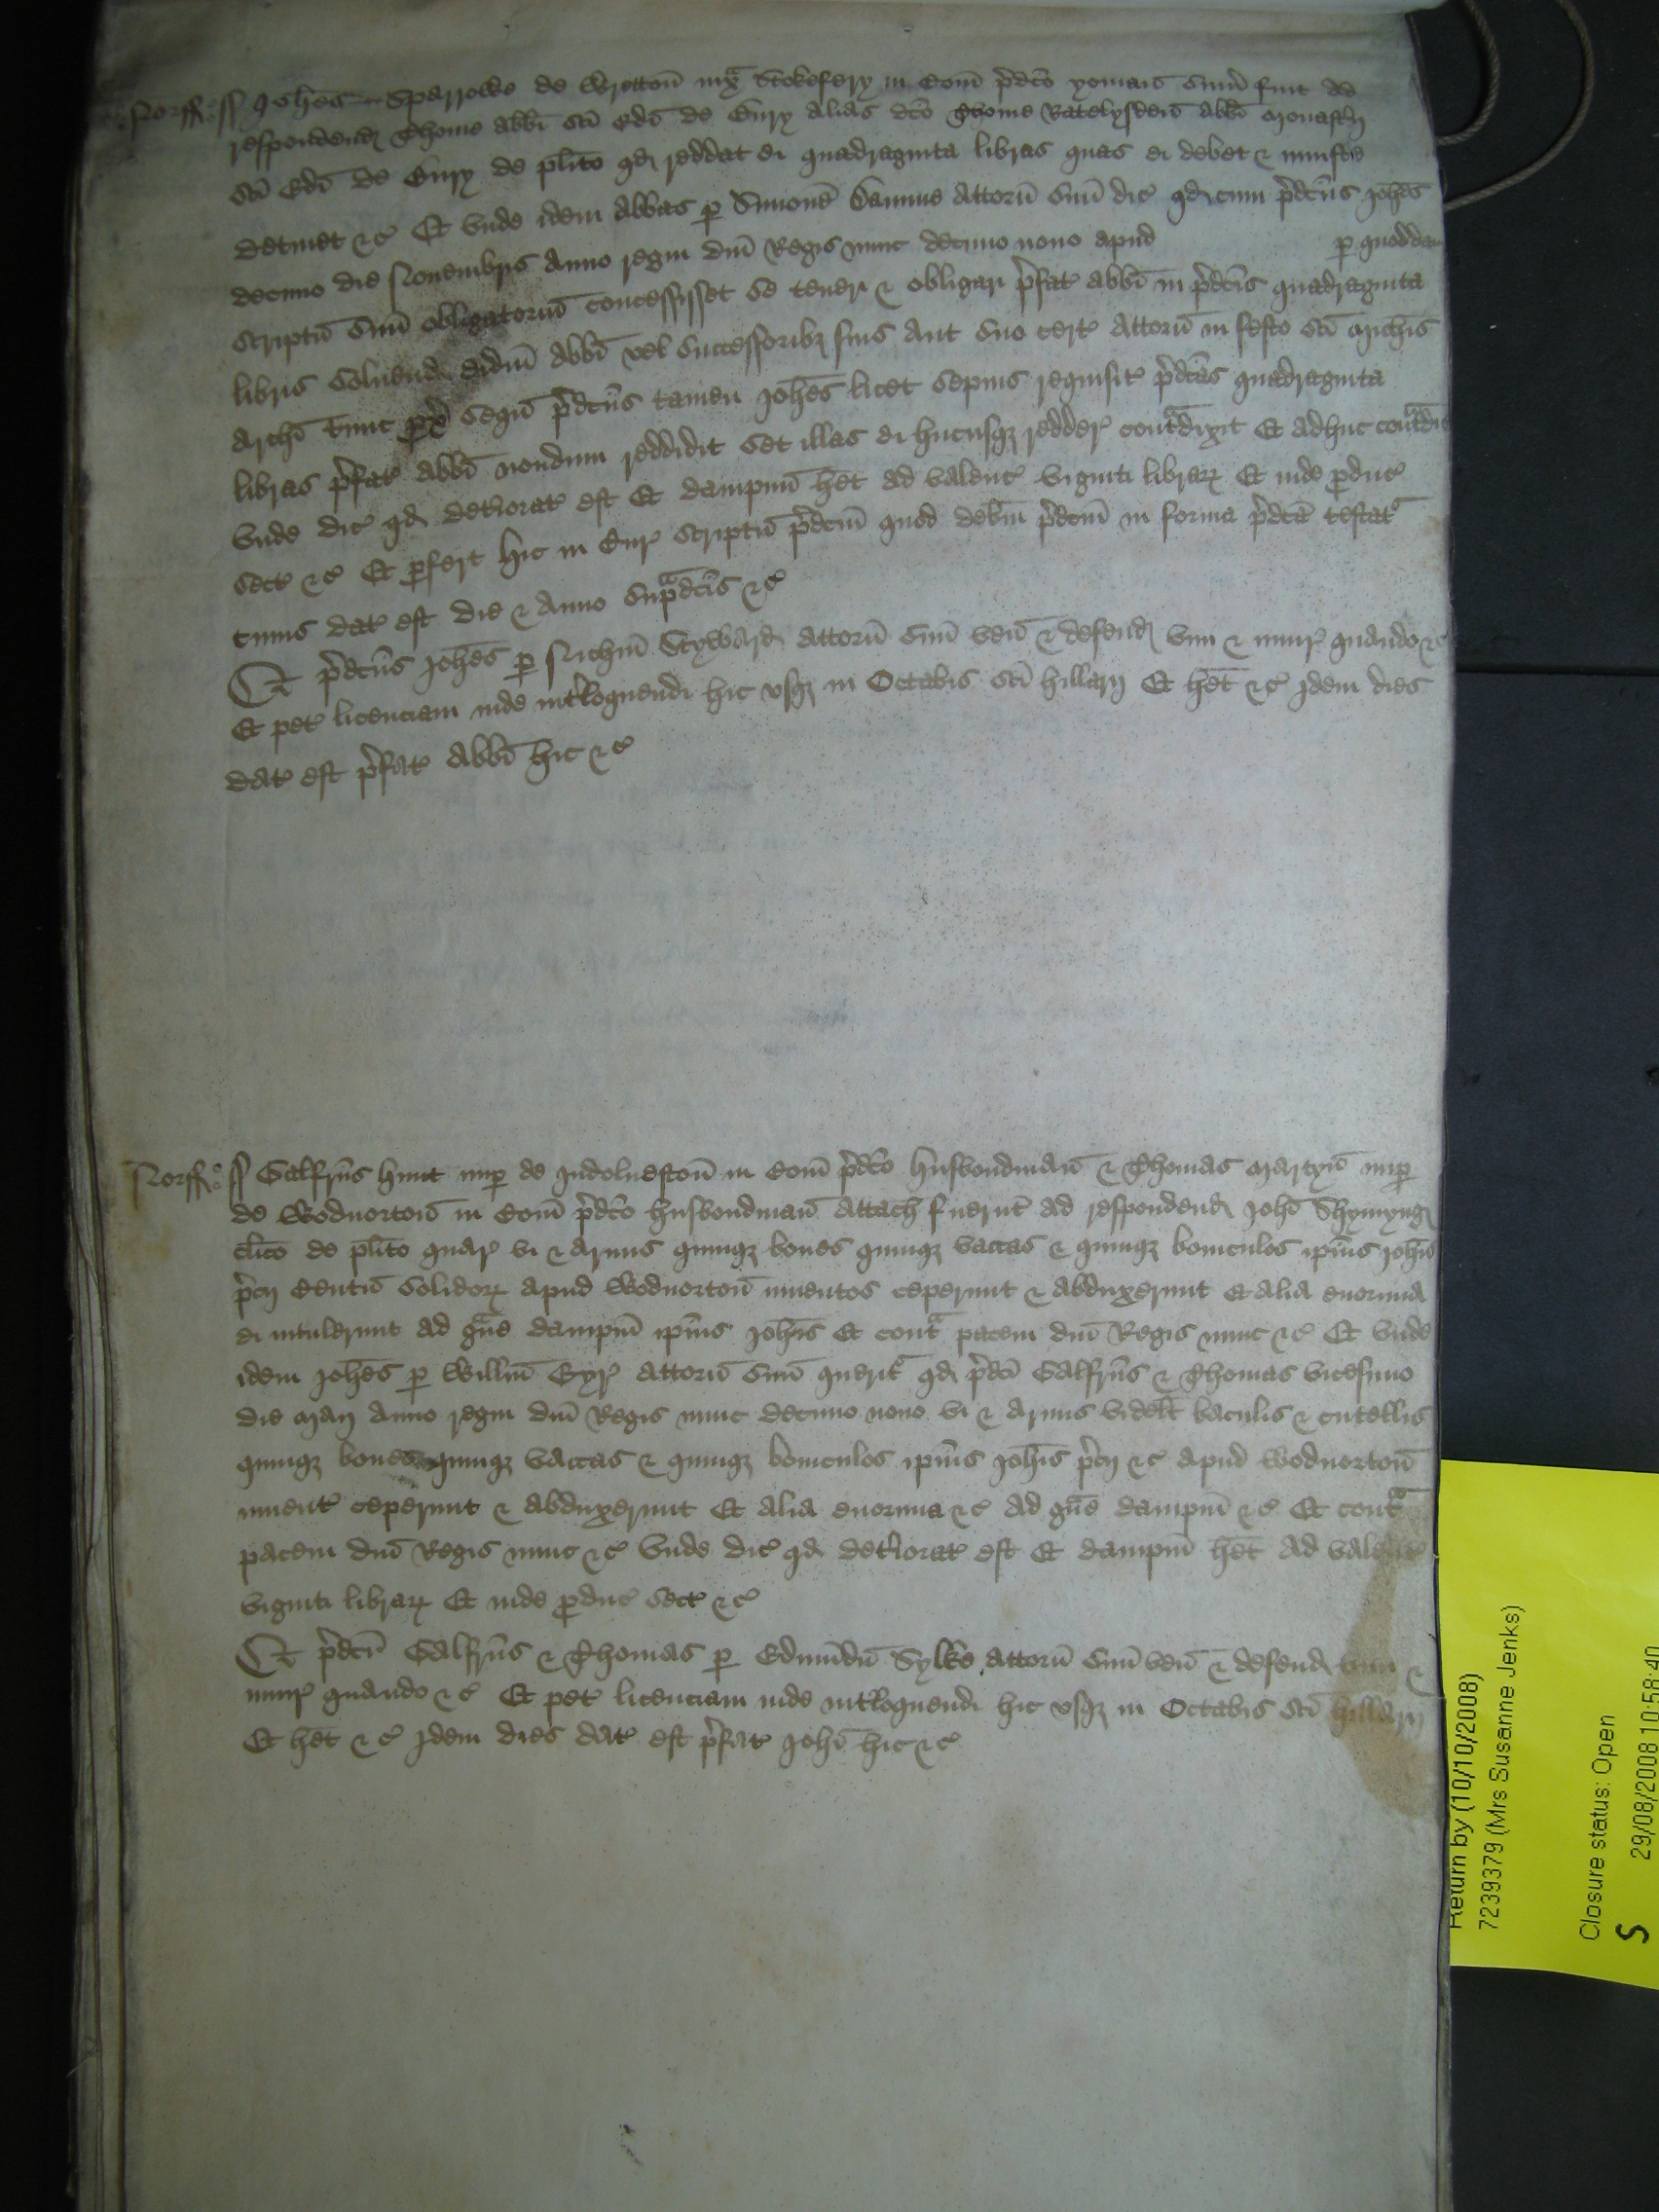 Norff ſſ Joħes Sparrowe de Wrottoñ iuxᵃ Stokefery in Coᷓm p̄dc̄o yoman suᷓm fuit ad
respondend Thome abbi sc̄i Edi de Bury alias dc̄o Thome Ratelysdeñ abbi Monasterij
sc̄i Edi de Bury de pl̄ito qd reddat ei quadraginta libras quas ei debet & iniuste
detinet &c̄ Et vnde idem abbas p Simonē Damme attorñ suū dic̄ qd cum p̄dc̄us Joħes
decimo die Nouembris anno regni dn̄i Regis nunc decimo nono apud p quoddam
scriptū suū obligatoriū concessisset se teneri & obligari p̄fat abbi in p̄dc̄is quadraginta
libris soluend eidm̄ abbi vel successoribȝ suis aut suo cert attorñ in festo sc̄i Micħis
Archi tunc px̄ sequ p̄dc̄us tamen Joħes licet sepius requisit p̄dc̄as quadraginta
libras p̄fat abbi nondum reddidit set illas ei hucusqȝ redder contᵃdixit Et adhuc contᵃdic
vnde dic̄ qd det̄iorat est Et dampnū het ad valenc̄ viginti librarꝝ Et inde produc̄
sect̄ &c̄ Et profert hic in Cur̄ scriptū p̄dc̄m quod debm̄ p̄dc̄m in forma p̄dc̄a testatᵘʳ
cuius dat est die & anno supᵃdc̄is &c̄
Et p̄dc̄us Joħes p Nichm̄ Styward attorñ suū veñ & defend vim & iniur̄ quando &c̄
Et pet licenciam inde int̄loquendi hic vsqȝ in Octabis sc̄i Hillarij Et het &c̄ Idem dies
dat est p̄fat abbi hic &c̄
Norff ſſ Galfrūs Hunt nup de Indolueston̄ in Coᷓm p̄dc̄o husbondmañ & Thomas Martyñ nup
de Wodnortoñ in Coᷓm p̄dc̄o husbondmañ attacħ fuerunt ad respondend Joħi Shymyng
cl̄ico de pl̄ito quar̄ vi & armis quinqȝ boues quinqȝ vaccas & quinqȝ boniculos ip̄ius Joħis
p̄cij centū solidorꝝ apud Wodnortoñ inuentos ceperunt & abduxerunt Et alia enormia
ei intulerunt ad gᵃue dampnū ip̄ius Joħis Et contᵃ pacem dn̄i Regis nunc &c̄ Et vnde
idem Joħes p Willm̄ Eyr̄ attorñ suū queritᵘʳ qd p̄dc̄i Galfrūs & Thomas vicesimo
die Maij anno regni dn̄i Regis nunc decimo nono vi & armis videlt baculis & cutellis
quinqȝ boues quinqȝ vaccas & quinqȝ boniculos ip̄ius Joħis p̄cij &c̄ apud Wodnortoñ
inuent ceperunt & abduxerunt Et alia enormia &c̄ ad gᵃue dampnū &c̄ Et contᵃ
pacem dn̄i Regis nunc &c̄ vnde dic̄ qd det̄iorat est Et dampnū het ad valenc̄
viginti librarꝝ Et inde produc̄ sect̄ &c̄
Et p̄dc̄i Galfrūs & Thomas p Edmūdū Sylke attorñ suū veñ & defend vim &
iniur̄ quando &c̄ Et pet licenciam inde int̄loquendi hic vsqȝ in Octabis sc̄i Hillarij
Et het &c̄ Idem dies dat est p̄fat Joħi hic &c̄
Return by (10/10/2008)
7239379 (Mrs Susanne Jenks)
Closure status: Open
S 29/08/2008 10:58:40